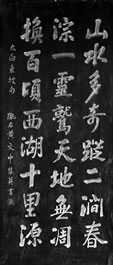 山水多奇蹤二澗春
淙一靈鷲天地無凋
換百頃西湖十里源
太白東坡句
黃文中集并書